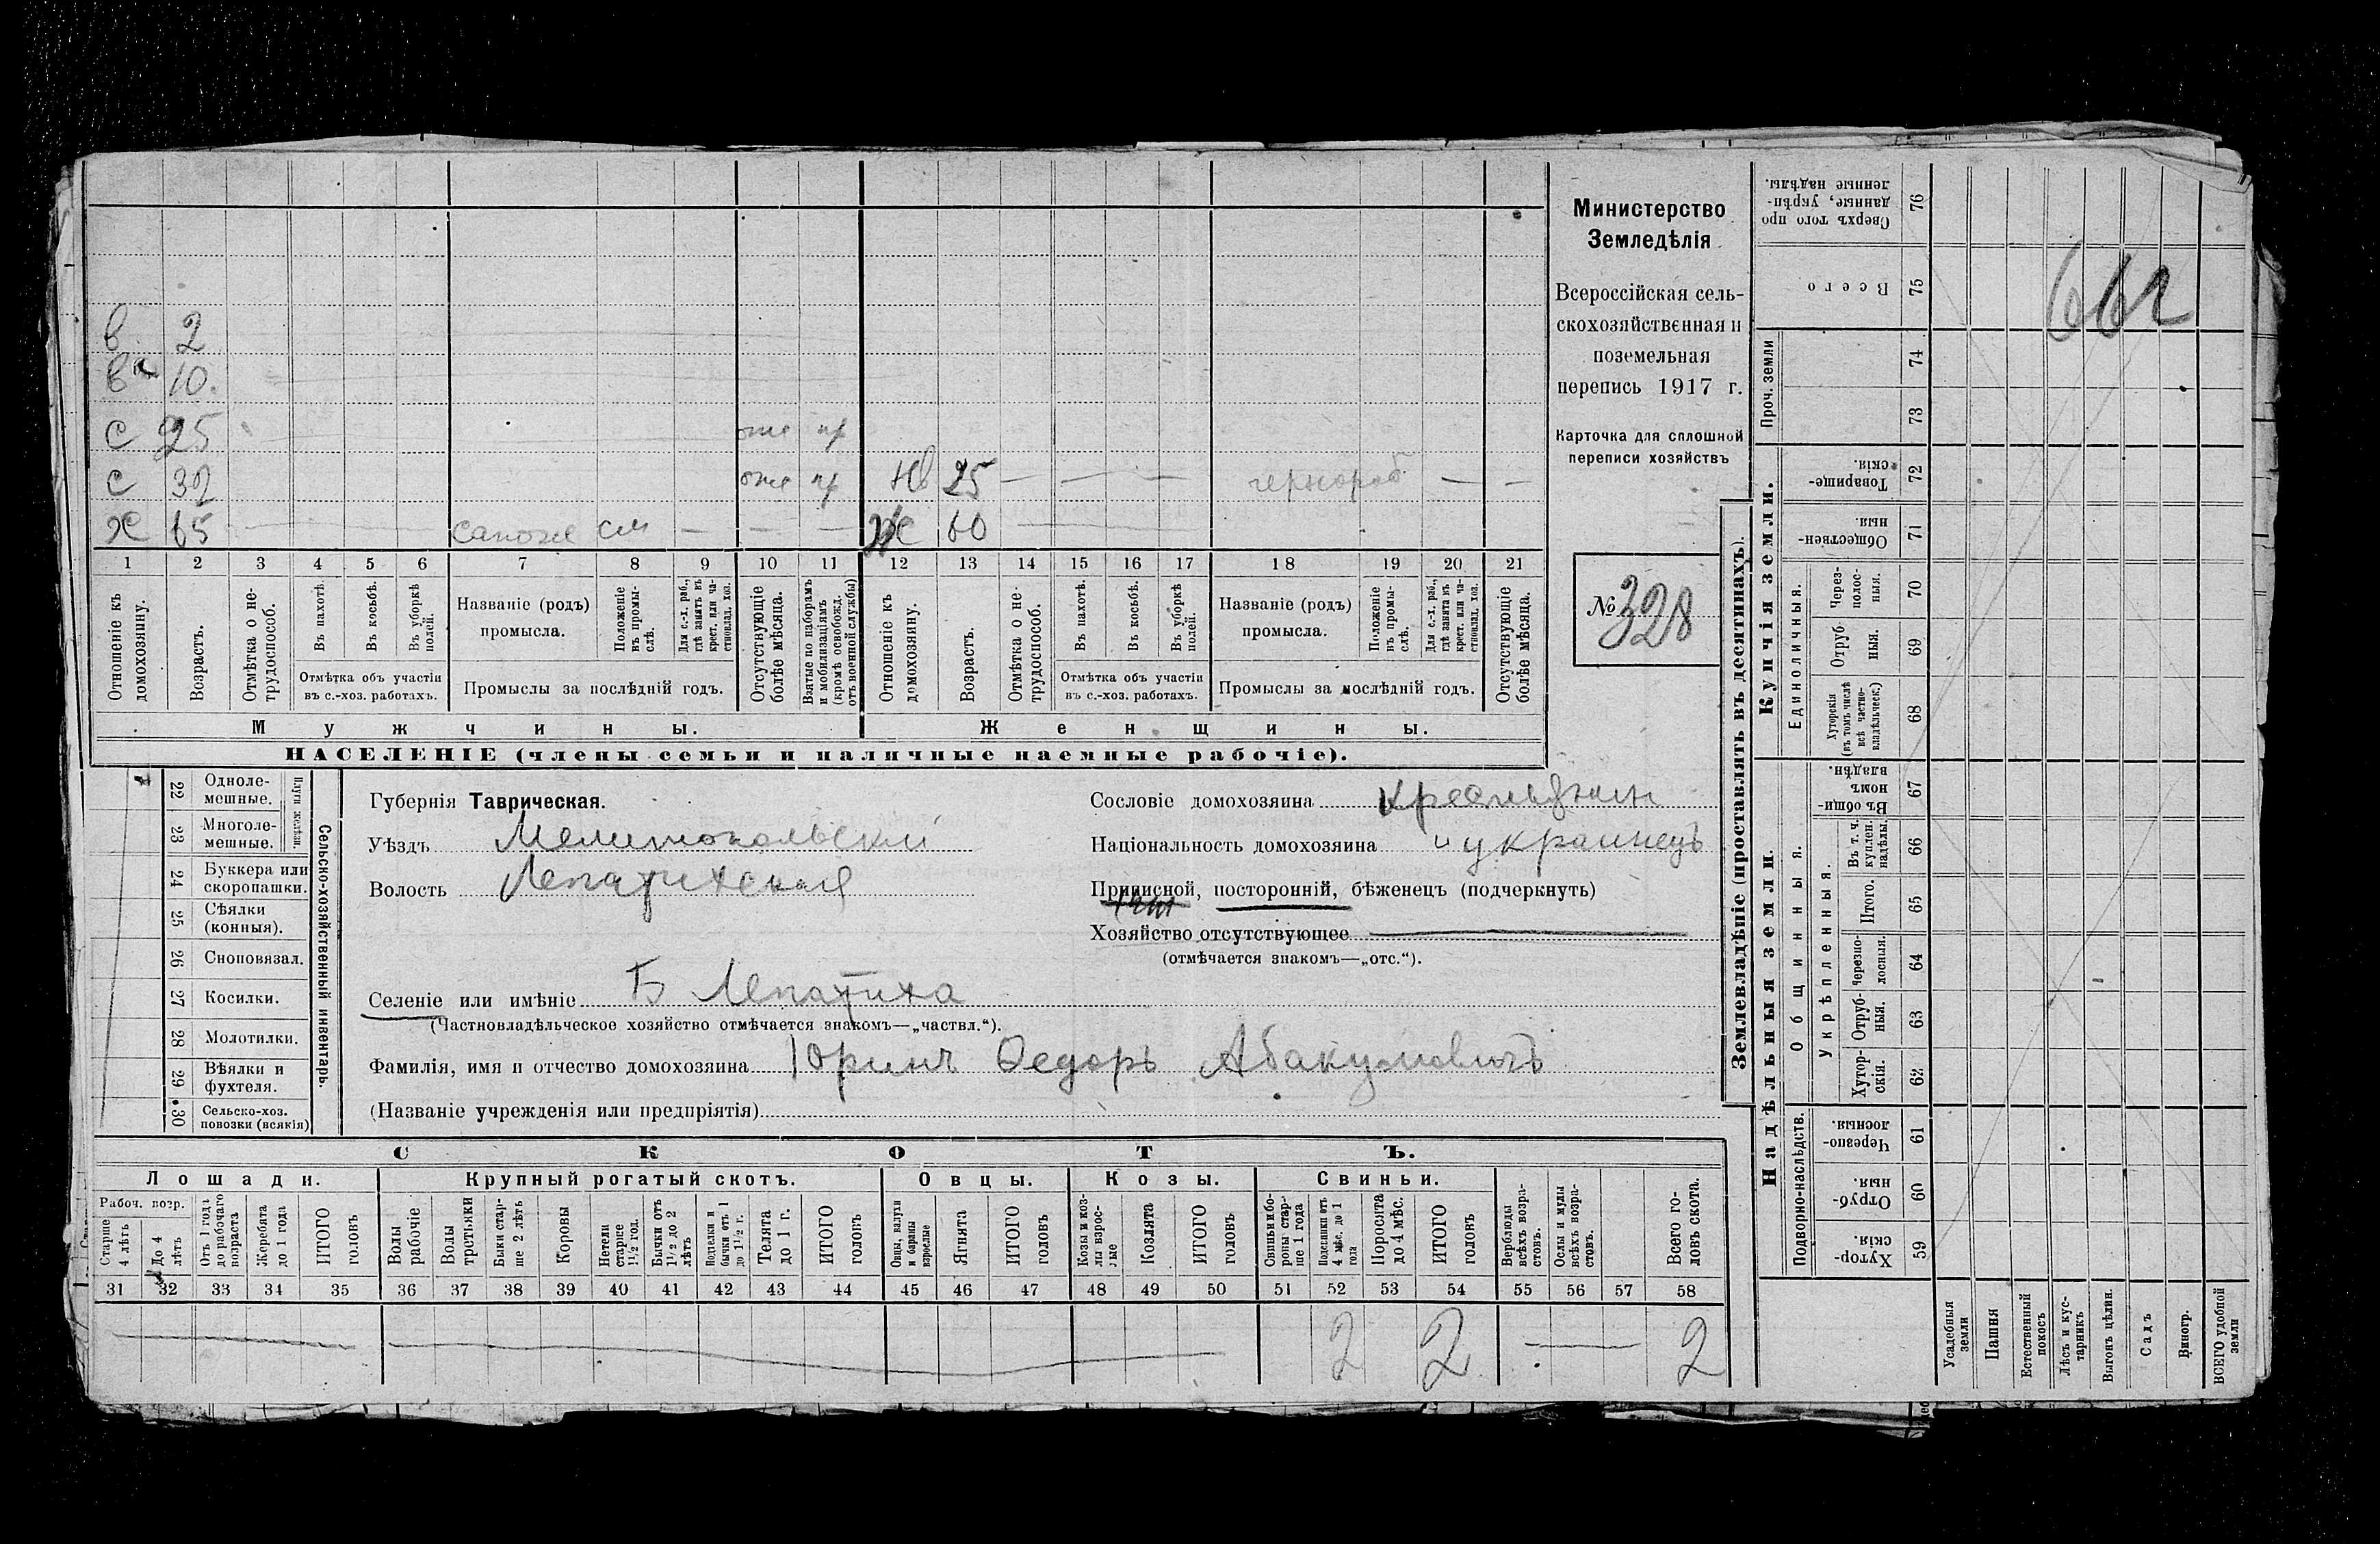 в 2
вк 10.
с 25 оже пр
с 32 оже пр нв 25 — — — чернораб — —
х 65 сапож см — — — ж 60
1 2 3 4 5 6 7 8 9 10 11 12 13 14 15 16 17 18 19 20 21
Отношеніе къ домохозяину.
Возрастъ.
Отмѣтка о не-трудоспособ.
Въ пахотѣ.
Въ косьбѣ.
Въ уборкѣ полей.
Отмѣтка объ участіи
въ с.-хоз. работахъ.
Названіе (родъ)
промысла.
Положеніе въ промы-слѣ.
Для с.-х. раб., гдѣ занятъ въ крест. или ча-стновлад. хоз.
Промыслы за послѣдній годъ.
Отсутствующіе болѣе мѣсяца.
Взятые по наборамъ и мобилизаціямъ (кромѣ освобожд. отъ военной службы)
Отношеніе къ домохозяину.
Возрастъ.
Отмѣтка о не-трудоспособ.
Въ пахотѣ.
Въ косьбѣ.
Въ уборкѣ полей.
Отмѣтка объ участіи
въ с.-хоз. работахъ.
Названіе (родъ)
промысла.
Положеніе въ промы-слѣ.
Для с.-х. раб., гдѣ занята въ крест. или ча-стновлад. хоз.
Промыслы за послѣдній годъ.
Отсутствующіе болѣе мѣсяца.
Мужчины. Женщины.
НАСЕЛЕНІЕ (члены семьи и наличные наемные рабочіе).
Министерство
Земледѣлія
Всероссійская сель-
скохозяйственная и
поземельная
перепись 1917 г.
Карточка для сплошной
переписи хозяйствъ
№ 328
22 Одноле-мешные.
23 Многоле-мешные.
Плуги желѣзн.
24 Буккера или скоропашки.
25 Сѣялки (конныя).
26 Сноповязал.
27 Косилки.
28 Молотилки.
29 Вѣялки и фухтеля.
30 Сельско-хоз. повозки (всякія)
Сельско-хозяйственный инвентарь.
Губернія Таврическая.
Уѣздъ Мелитопольскій
Волость Лепатихская
Селеніе или имѣніе Б Лепатиха
(Частновладѣльческое хозяйство отмѣчается знакомъ—„частвл.“).
Фамилія, имя и отчество домохозяина Юринъ Федоръ Абакумовичъ
(Названіе учрежденія или предпріятія)
Сословіе домохозяина крестьянин
Національность домохозяина украинецъ
Приписной, посторонній, бѣженецъ (подчеркнуть)
Хозяйство отсутствующее
(отмѣчается знакомъ—„отс.“).
СКОТЪ.
Лошади. Крупный рогатый скотъ. Овцы. Козы. Свиньи.
Рабоч. возр.
Старше 4 лѣтъ
До 4 лѣтъ
Отъ 1 года до рабочаго возраста
Жеребята до 1 года
ИТОГО головъ
Волы рабочіе
Волы третьяки
Быки стар-ше 2 лѣтъ
Коровы
Нетели старше 1½ год.
Бычки отъ 1½ до 2 лѣтъ
Подтелки и бычки отъ 1 до 1½ г.
Телята до 1 г.
ИТОГО головъ
Овцы, валухи и бараны взрослые
Ягнята
ИТОГО головъ
Козы и коз-лы взрос-лые
Козлята
ИТОГО головъ
Свиньи и бо-ровы стар-ше 1 года
Подсвинки отъ 4 мѣс. до 1 года
Поросята до 4 мѣс.
ИТОГО головъ
Верблюды всѣхъ возра-стовъ.
Ослы и мулы всѣхъ возра-стовъ.
Всего го-ловъ скота.
31 32 33 34 35 36 37 38 39 40 41 42 43 44 45 46 47 48 49 50 51 52 53 54 55 56 57 58
2 2 2
Землевладѣніе (проставлять въ десятинахъ).
Купчія земли.
Надѣльныя земли.
Сверхъ того про-данные, укрѣп-ленные надѣлы. 76
Всего 75
Проч. земли 74
73
Товарище-скія. 72
Обществен-ныя. 71
Единоличныя.
Через-полос-ныя. 70
Отруб-ныя. 69
Хуторскія (въ томъ числѣ всѣ частно-владѣльческ.) 68
Въ общи-номъ владѣн. 67
Общинныя.
Укрѣпленныя.
Въ т. ч. куплен. надѣлы. 66
Итого. 65
Черезпо-лосныя. 64
Отруб-ныя. 63
Хутор-скія. 62
Подворно-наслѣдств.
Черезпо-лосныя. 61
Отруб-ныя. 60
Хутор-скія. 59
Усадебныя земли
Пашня
Естественный покосъ
Лѣсъ и кус-тарникъ
Выгонъ цѣлин.
Садъ
Виногр.
ВСЕГО удобной земли